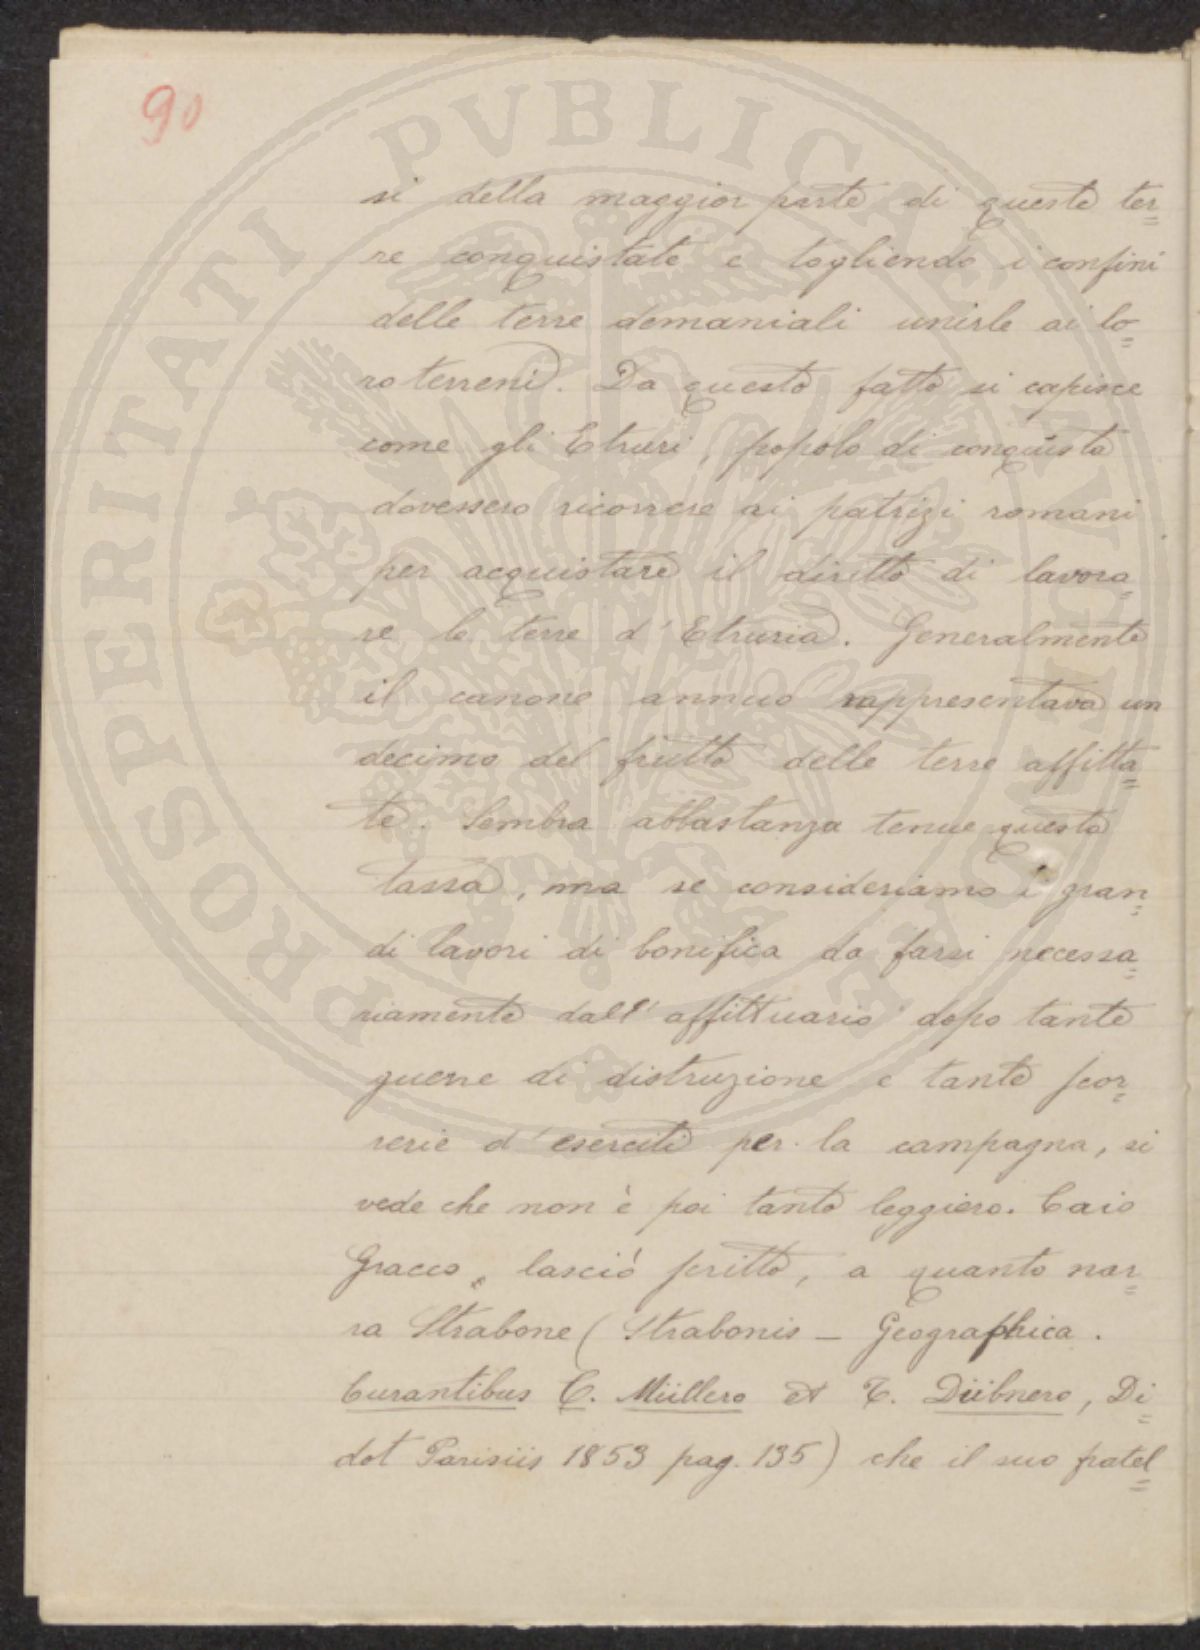 90
si della maggior parte di queste ter=
re conquistate e togliendo i confini
delle terre demaniali unirle ai lo=
ro terreni. Da questo fatto si capisce
come gli Etruri, popolo di conquista
dovessero ricorrere ai patrizi romani
per acquistare il diritto di lavora=
re le terre d'Etruria. Generalmente
il canone annuo rappresentava un
decimo del frutto delle terre affitta=
te. Sembra abbastanza tenue questa
tassa, ma se consideriamo i gran=
di lavori di bonifica da farsi necessa=
riamente dall'affittuario dopo tante
guerre di distruzione e tante scor=
rerie d'eserciti per la campagna, si
vede che non è poi tanto leggiero. Caio
Gracco, lasciò scritto, a quanto nar=
ra Strabone (Strabonis — Geographica.
Curantibus C. Müllero et T. Dübnero, Di=
dot Parisiis 1853 pag. 135) che il suo fratel=
PROSPERITATI PVBLICAE AVGENDAE